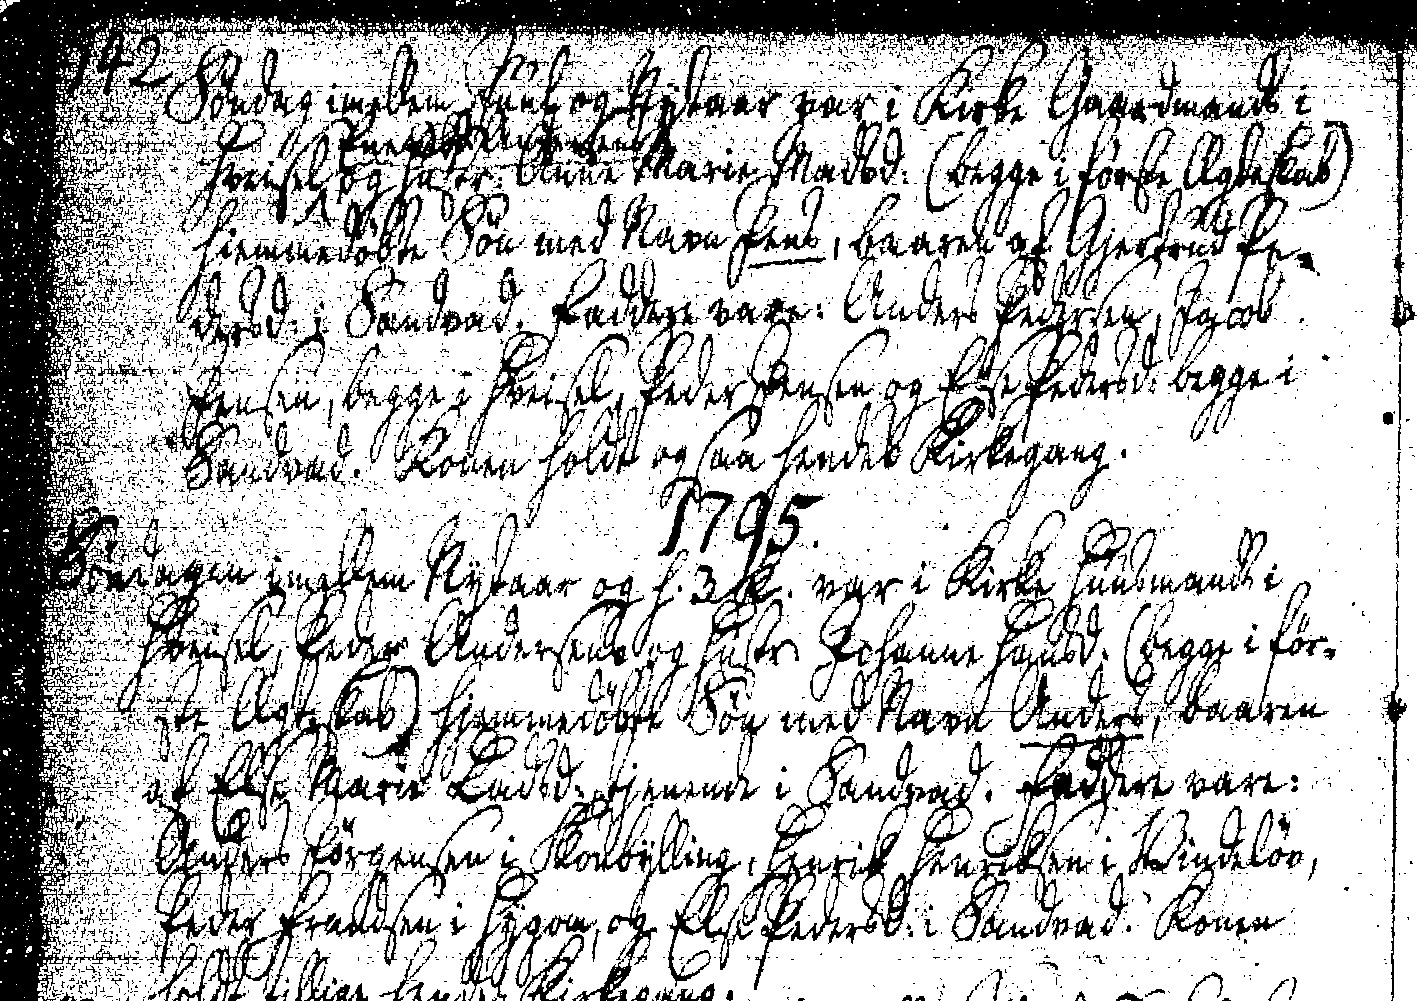 142
Søndag imellem Juul og Nÿtaar var i Kirke Gaardmands i
Hveisel og Hustr: Anne Marie Madsd: (begge i første Ægteskab)
hiemmedøbte Søn med Navn Jens, baaren af Gjertrud Pe-
dersd: i Sandvad. Faddere vare: Anders Pedersen, Jacob
Jensen, begge i Hveisel, Peder Jensen og Else Pedersd: begge i
Sandvad. Konen holdt og saa hendes Kirkegang.
1795.
Søndagen imellem Nÿtaar og h. 3 K. var i Kirke Huusmands i
Hveisel, Peder Andersens og Hustr: Johanne Hansd. (begge i før-
ste Ægteskab) hjemmedøbte Søn med Navn Anders, baaren
af Else Marie Ladsd: tjenende i Sandvad. Faddere vare:
Anders Jørgensen i Skovbÿlling, Henrik Henriksen i Windeløv,
Peder Frandsen i Hÿgom, og Else Pedersd: i Sandvad. Konen
holdt tillige hendes Kirkegang.